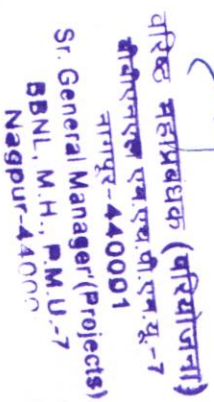 वरिष्ठ महाप्रबंधक (परियोजना)
बीबीएनएल एम.एच.पी.एम.यू-7
नागपूर-440001
Sr. General Manager (Projects)
BBNL, M.H., P.M.U-7
Nagpur-44000